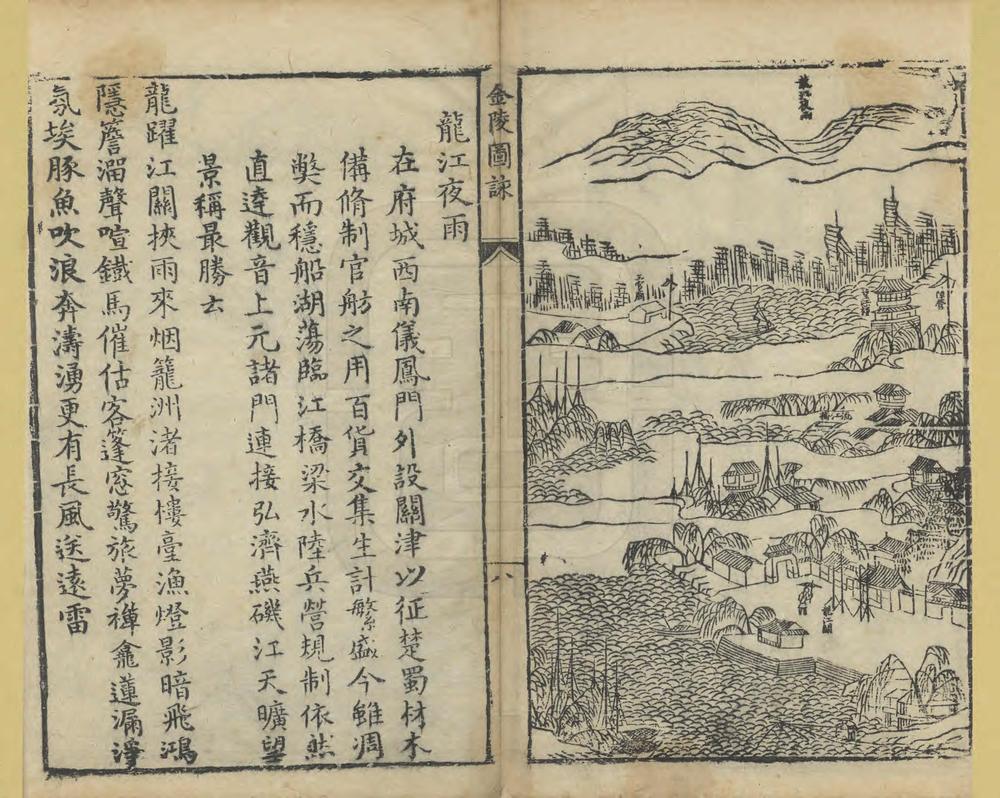 龍江夜雨
龍江關
金陵圖詠
八
龍江夜雨
在府城西南儀鳳門外設關津以征楚蜀材木
備脩制官舫之用百貨交集生計繁盛今雖凋
獘而穩船湖蕩臨江橋梁水陸兵營規制依然
直達觀音上元諸門連接弘濟燕磯江天曠望
景稱最勝云
龍躍江關挾雨來烟籠洲渚接樓臺漁燈影暗飛鴻
隱簷溜聲喧鐵馬催估客篷窓驚旅夢禪龕蓮漏淨
氛埃豚魚吹浪奔濤湧更有長風送遠雷